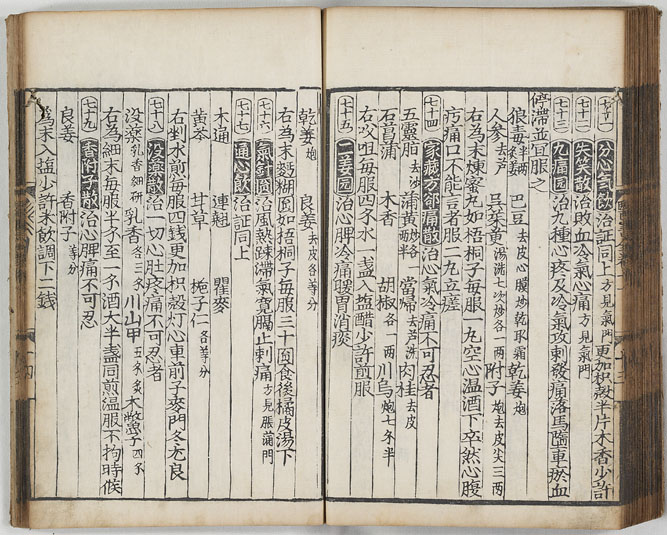 七十一 分心氣飲 治証同上 方見氣門 更加枳殼半片木香少許
七十二 失笑散 治敗血冷氣心痛 方見氣門
七十三 九痛圓 治九種心疼及冷氣攻刺發痛落馬墮車瘀血
停滯並宜服之
狼毒 半兩 巴豆 去皮心膜炒乾取霜 乾姜 炮
人參 去芦 吳茱萸 湯洗七次炒各一兩 附子 炮去皮尖三兩
右為末煉蜜丸如梧桐子每服一九空心温酒下卒然心腹
疞痛口不能言者服二九立瘥
七十四 家藏方却痛散 治心氣冷痛不可忍者
五靈脂 去沙 蒲黃 炒 當歸 去芦洗 肉桂 去皮
石菖蒲 木香 胡椒 各一兩 川烏 炮七錢半
右㕮咀每服四錢水一盞入塩醋少許煎服
七十五 二姜圓 治心脾冷痛暖胃消痰
乾姜 炮 良姜 去皮各等分
右為末麫糊圓如梧桐子每服三十圓食後橘皮湯下
七十六 氣針圓 治風熱踈滯氣寬膈止刺痛 方見脹滿門
七十七 通心飲 治証同上
木通 連翹 瞿麥
黃芩 甘草 梔子仁 各等分
右剉水煎每服四錢更加枳殼灯心車前子麥門冬尤良
七十八 没藥散 治一切心肚疼痛不可忍者
没藥 乳香 細研 乳香 各三錢 川山甲 五錢炙 木鱉子 四錢
右為細末每服半錢至一錢酒大半盞同煎温服不拘時候
七十九 香附散 治心脾痛不可忍
良姜 香附子 等分
為末入塩少許米飲調下二錢